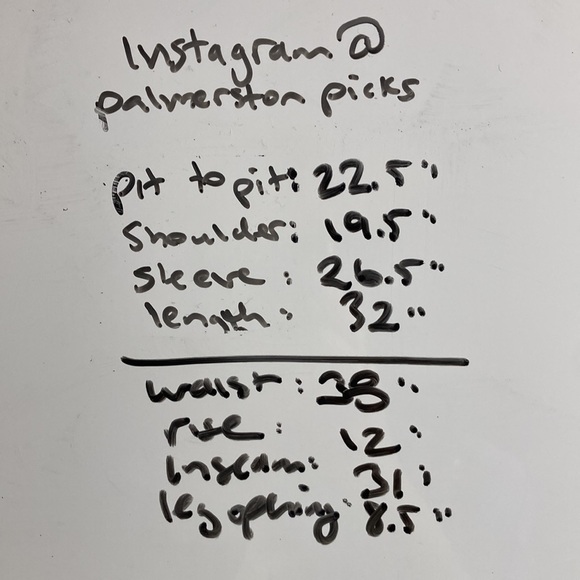 Instagram @
palmerston picks
pit to pit: 22.5"
shoulder: 19.5"
sleeve : 26.5"
length : 32"
waist : 38"
rise : 12"
Inseam: 31"
leg opening: 8.5"